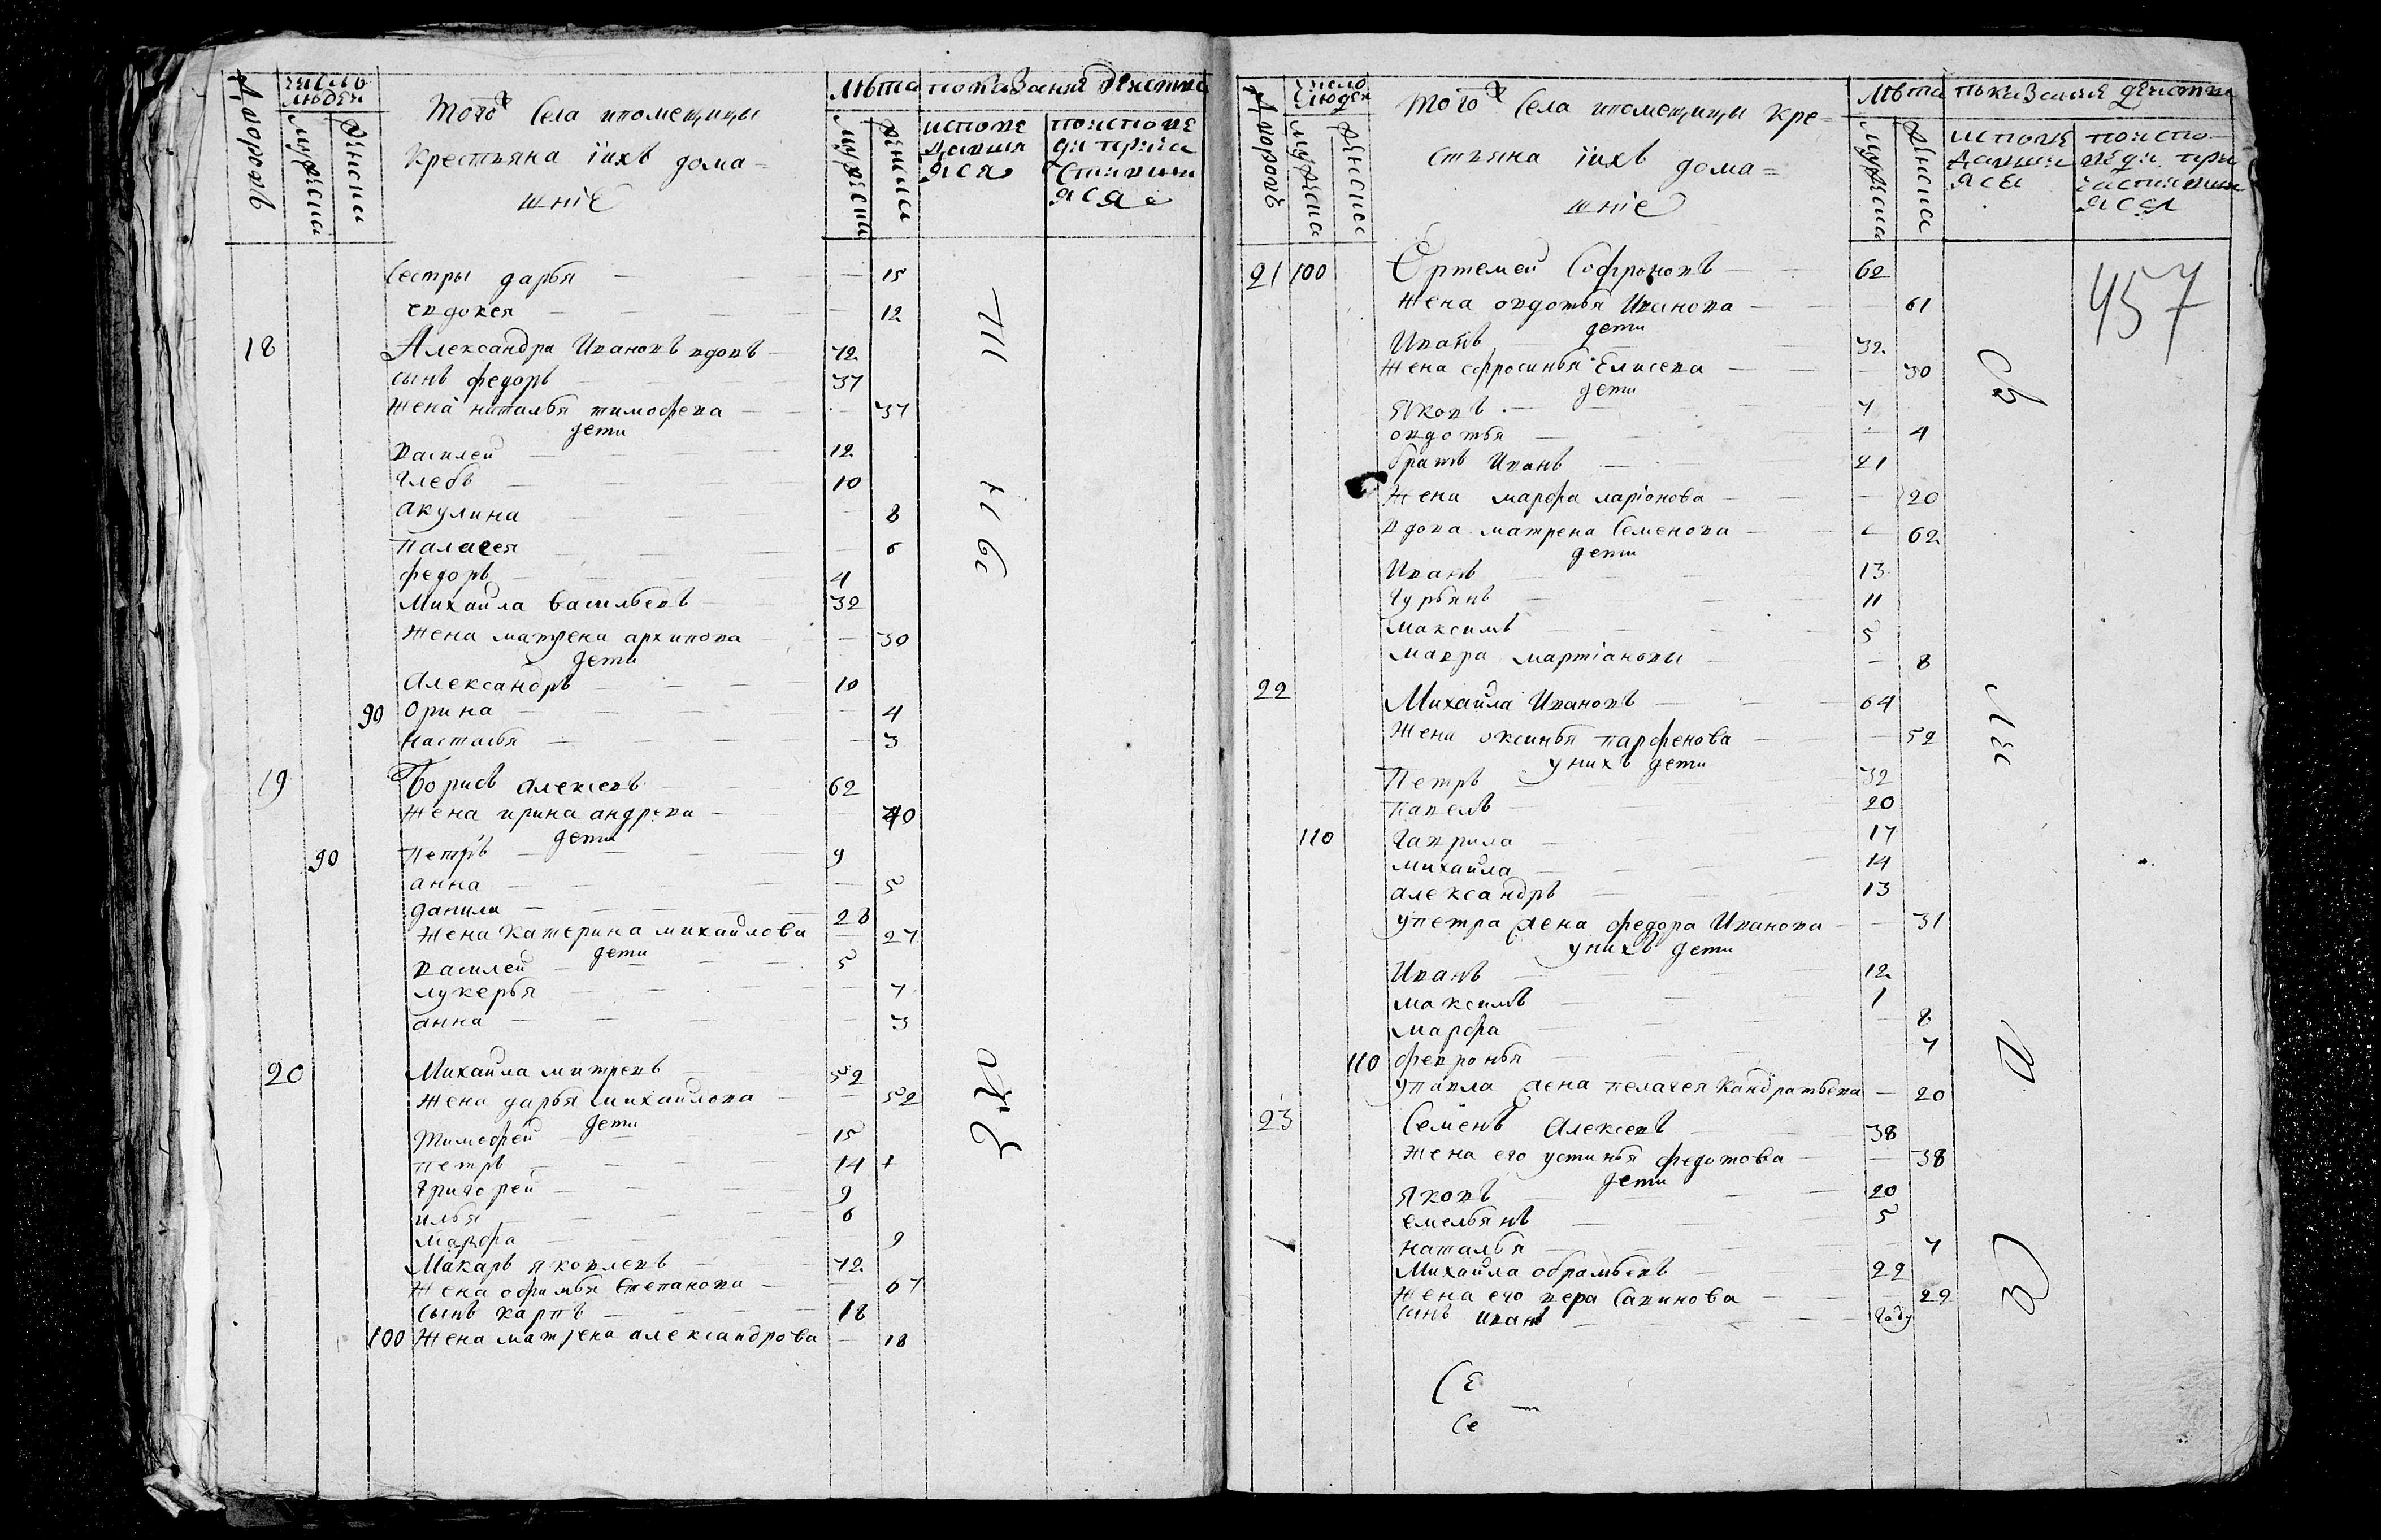 Дворовъ
число людей
мужеска
женска
Того ж Села ипомещицы
крестьяна iихъ дома=
шнiе
лѣта
мужеска
женска
показания действа
исповедавшияся
поисповеди причастившияся
Сестры дарья — 15
евдокея — 12
18 Александра Ивановъ вдовъ 72
сынъ федоръ 37
жена наталья тимофева — 37
дети
василей 12
глебъ 10
акулина — 8
Палагея — 6
федоръ 4
Михаила васильевъ 32
жена матрена архипова — 30
дети
Александръ 10
90 Орина — 4
настасья — 3
19 Борисъ алексевъ 62
жена ирина андрева — 40
дети
90 Петръ 9
анна — 5
данила 28
жена катерина михаилова — 27
дети
василей 5
лукерья — 7
анна — 3
20 Михаила митревъ 52
жена дарья михаилова — 52
дети
тимофей 15
петръ 14 +
григорей 9
илья 6
марфа — 9
Макаръ яковлевъ 72
жена офимья степанова — 67
сынъ карпъ 18
100 жена матрена александрова — 18
Дворовъ
число людей
мужеска
женска
Того ж Села ипомещицы кре=
стьяна iихъ дома=
шнiе
лѣта
мужеска
женска
показания действа
исповедавшияся
поисповеди причастившияся
457
21 100 Ортемей Софроновъ 62
жена овдотья Иванова — 61
дети
Иванъ 32
жена ефросинья Елисева — 30
дети
яковъ 7
овдотья — 4
братъ Иванъ 21
жена марфа ларiонова — 20
вдова матрена Семенова — 62
дети
Иванъ 13
гурьянъ 11
максимъ 5
мавра мартiановы — 8
22 Михаила Ивановъ 64
жена оксинья парфенова — 52
унихъ дети
Петръ 32
павелъ 20
110 гаврила 17
михаила 14
александръ 13
упетра жена федора Иванова — 31
унихъ дети
Иванъ 12
максимъ 1
марфа — 8
110 февронья — 7
упавла жена пелагея кандратьева — 20
23 Семенъ Алексевъ 38
жена его устинья федотова — 38
дети
яковъ 20
емельянъ 5
наталья — 7
Михаила обрамьевъ 22
жена его вера Савинова — 22
сынъ иванъ году
Се